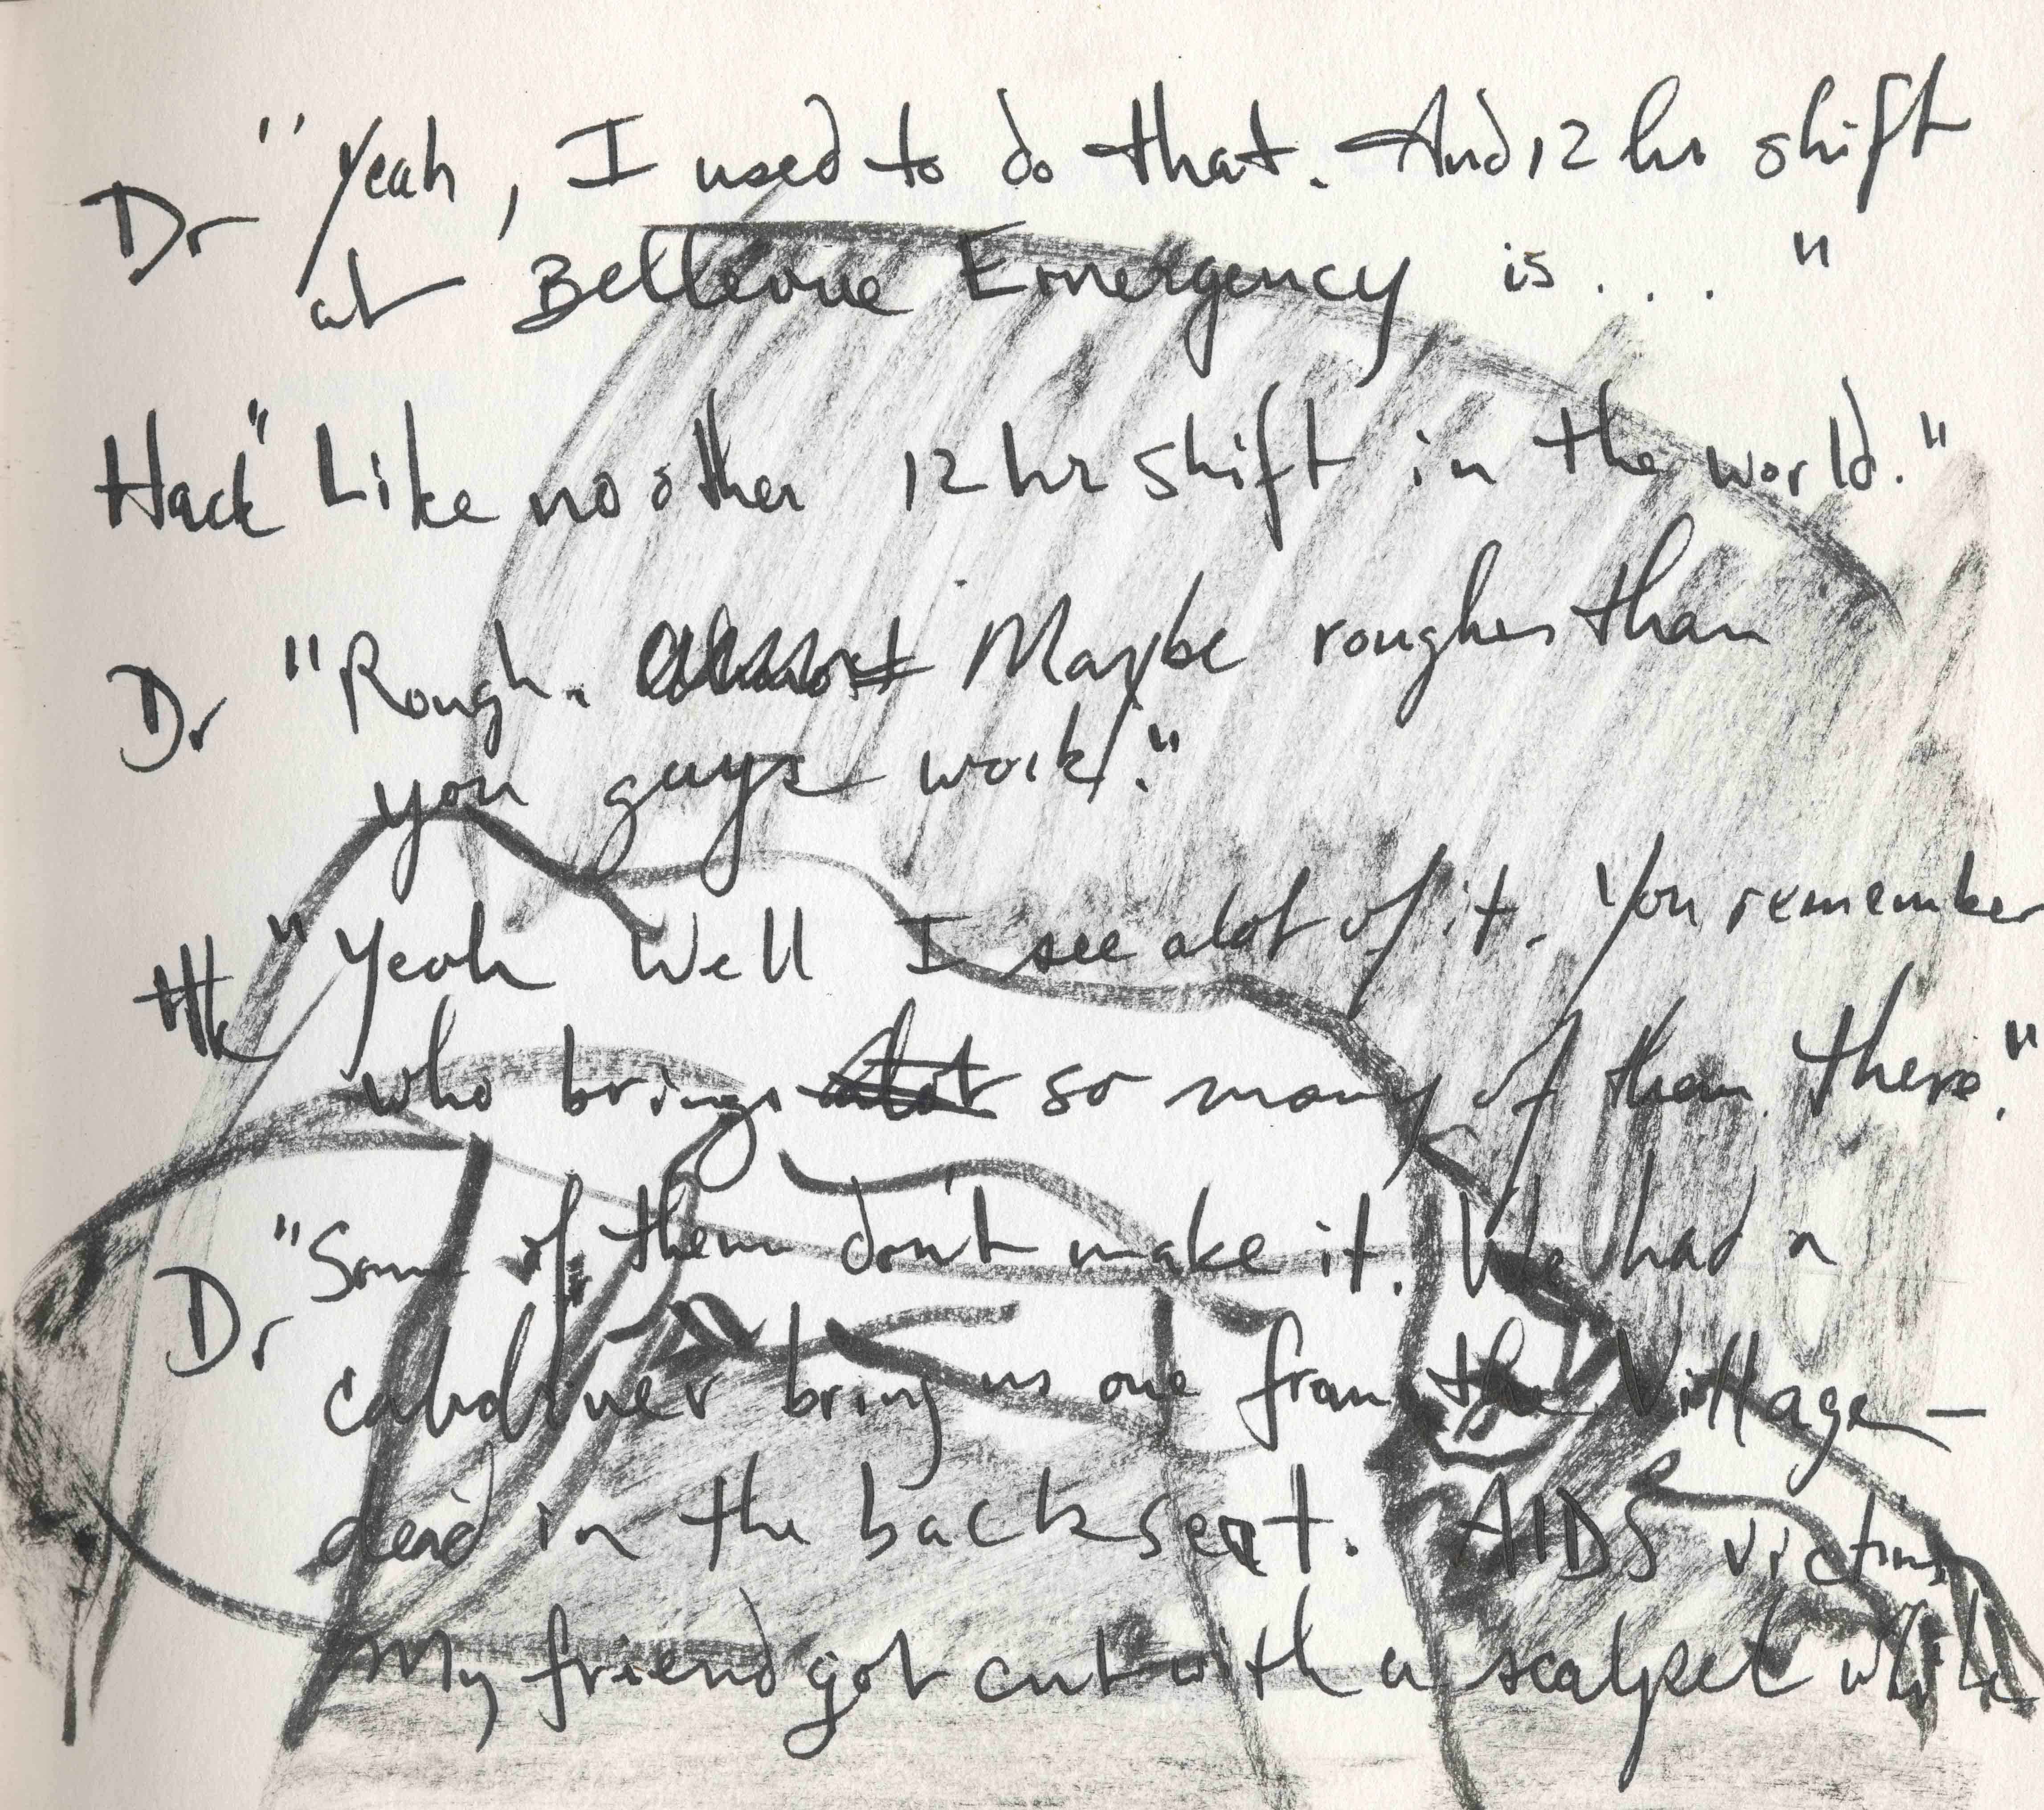 Dr "Yeah, I used to do that. And 12 hr shift
at Bellevue Emergency is . . . "
Hack "Like no other 12 hr shift in the world."
Dr "Rough. Maybe rougher than
you guys work."
Hk "Yeah Well I see alot of it. You remember
who brings so many of them there."
Dr "Some of them don't make it. We had a
cabdriver bring us one from the Village –
dead in the backseat. AIDS victim
My friend got cut with a scalpel while